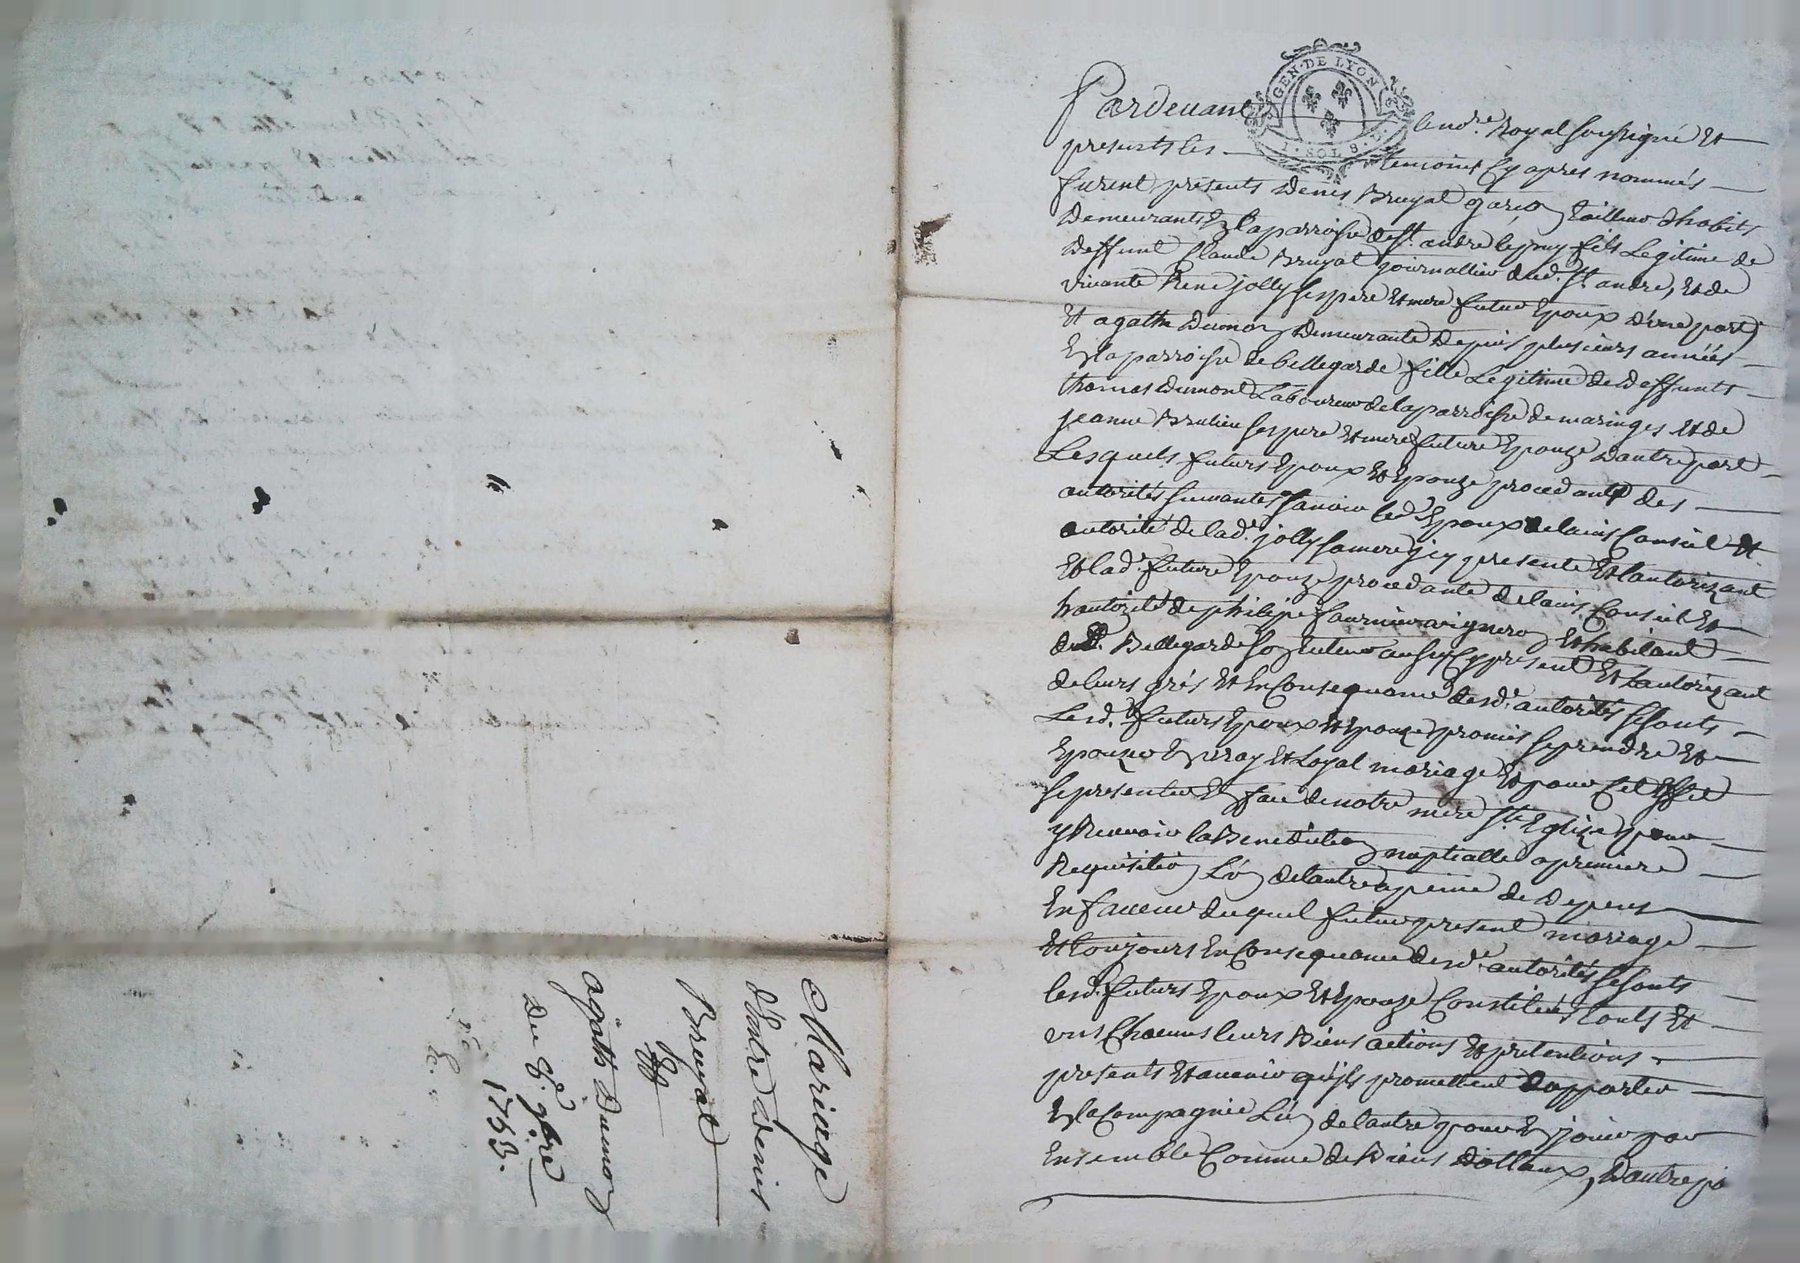 Mariage
d'Entre denis
Bruyat
Et
agathe Dumon
Du 8e 9bre
1753.
GEN·DE LYON
1·SOLS 8·D
Pardevant le no.re Royal soussigné Et
presents les temoins Cy apres nommés
furent presents denis Bruyat garcon tailleur d'habits
demeurants En la parroisse de st. andre le puy fils Legitime de
deffunt Claude Bruyat journallier dud. st. andre, Et de
vivante Rene jolly ses pere Et mere futur Epoux d'une part
Et agathe dumon demeurante depuis plusieurs années
En la parroisse de bellegarde fille Legitime de deffunts
thomas dumont Laboureur de la parroisse de maringes Et de
jeanne Brulieu ses pere Et mere future Epouze dautre part
Lesquels futurs Epoux Et Epouze procedants des
autorités suivantes scavoir led. Epoux de lavis Conseil Et
autorité de lad. jolly sa mere jcy presente Et lautorizant
Et lad. future Epouze procedante de lavis Conseil Et
hautorité de philipe fournier vigneron Et habitant
dud. Bellegarde son tuteur aussy Cy present Et lautorizant
de leurs grés Et En Consequance desd. autorités se sont
Lesd. futurs Epoux Et Epouze promis se prendre Et
Epouzer En vray Et Loyal mariage Et pour Cet Effet
se presenter En face de notre mere ste Eglize pour
y Recevoir la Benediction nuptialle a premiere
Requisition L'un de lautre a peine de depens
En faveur duquel futur present mariage
Et toujours En Consequance desd. autorités se sont
lesd. futurs Epoux Et Epouze Constitués touts Et
uns Chacuns leurs Biens actions Et pretentions
presents Et avenir qu'ils promettent dapporter
En la Compagnie L'un de lautre pour En jouir par
Ensemble Comme de Biens dottaux, Dautre